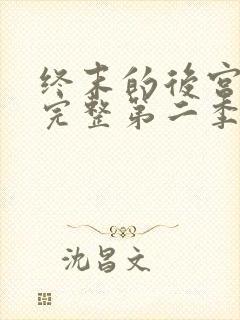 终末的後宫
完整第二季
沈昌文